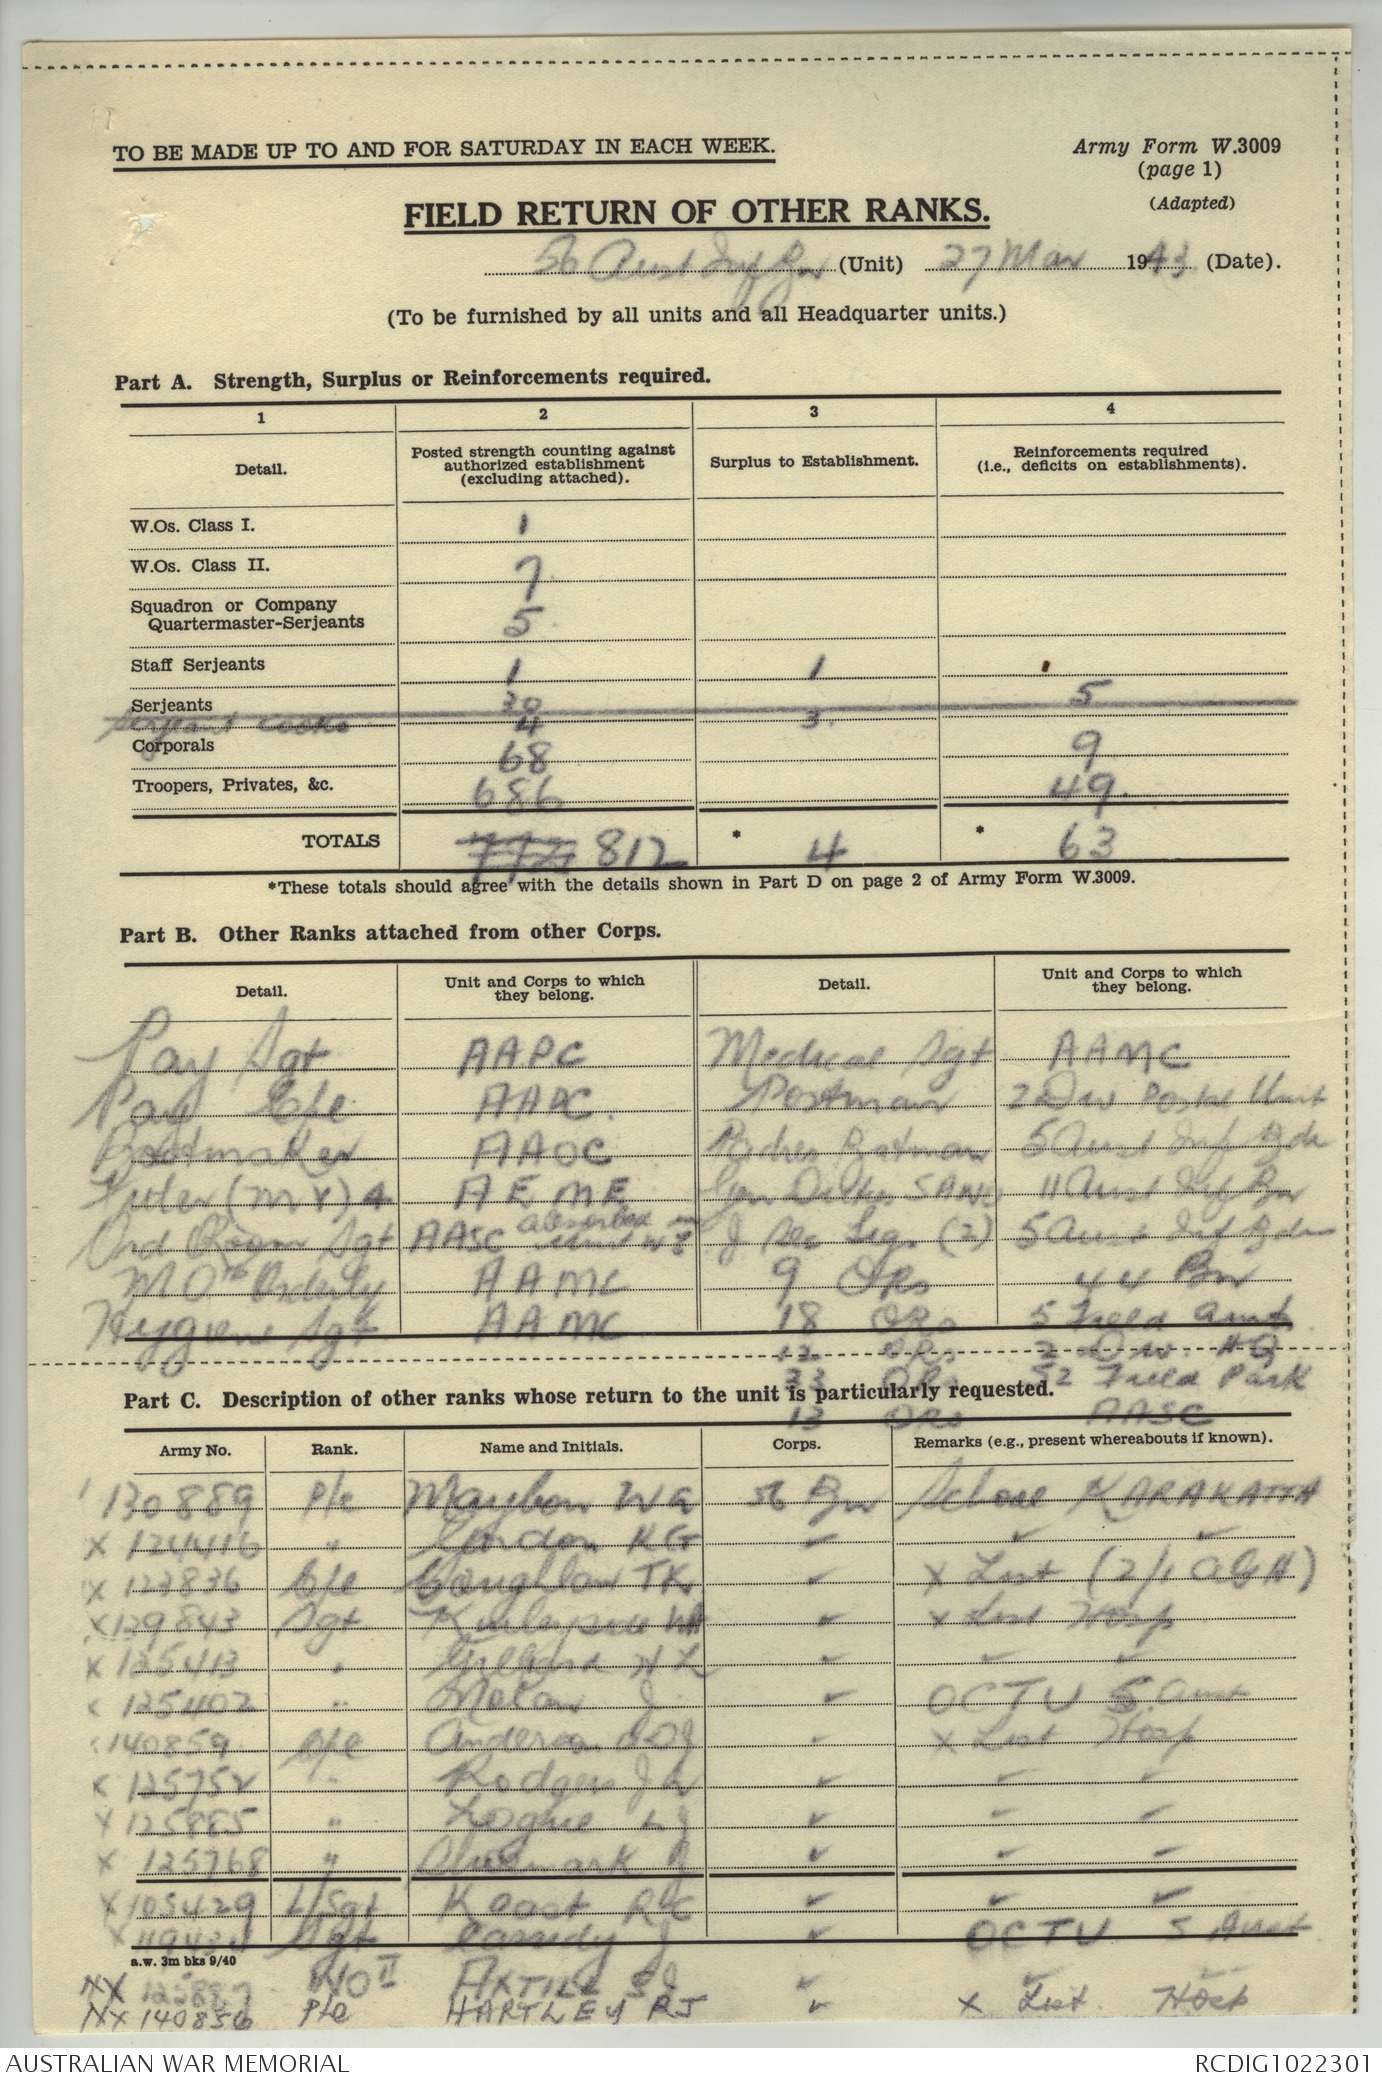 TO BE MADE UP TO AND FOR SATURDAY IN EACH WEEK.
Army Form W.3009
(page 1)
(Adapted)
FIELD RETURN OF OTHER RANKS.
56 Aust Inf Bn (Unit) 27 Mar 1943 (Date).
(To be furnished by all units and all Headquarter units.)
Part A. Strength, Surplus or Reinforcements required.
1 2 3 4
Detail. Posted strength counting against authorized establishment (excluding attached). Surplus to Establishment. Reinforcements required (i.e., deficits on establishments).
W.Os. Class I. 1
W.Os. Class II. 7
Squadron or Company Quartermaster-Serjeants 5
Staff Serjeants 1 1
Serjeants 30 5
Serjeant Cooks 4 3
Corporals 68 9
Troopers, Privates, &c. 686 49
TOTALS 812 * 4 * 63
*These totals should agree with the details shown in Part D on page 2 of Army Form W.3009.
Part B. Other Ranks attached from other Corps.
Detail. Unit and Corps to which they belong. Detail. Unit and Corps to which they belong.
Pay Sgt AAPC Medical Sgt AAMC
Pay Cpl AAPC Postman 2 Div Postal Unit
Bootmaker AAOC Batman 5 Aust Inf Bde
(MV) 4 AEME 11 Aust Inf Bn
Ord Room Sgt AASC absorbed J Sec Sigs (2) 5 Aust Inf Bde
MO Orderly AAMC 9 ORs 44 Bn
Hygiene Sgt AAMC 18 ORs 5 Field Amb
12 ORs 2 Div HQ
33 ORs 52 Field Park
13 ORs AASC
Part C. Description of other ranks whose return to the unit is particularly requested.
Army No. Rank. Name and Initials. Corps. Remarks (e.g., present whereabouts if known).
130889 Pte Maybon WG 56 Bn School KARAWATHA
X 124416 " Gordon KG ✓ ✓ ✓
X 123836 Cpl Coughlan TK ✓ X List (2/1 AGH)
X 129843 Sgt ✓ X List Hosp
X 125413 " Gilbard HL ✓ ✓ ✓
125402 " J ✓ OCTU 5 Aust
140859 Cpl Anderson ✓ X List Hosp
X 125752 " Rodgers J ✓ ✓ ✓
X 125885 " Logue LJ ✓ ✓ ✓
X 125768 " ✓ ✓ ✓
X 105429 L/Sgt Keast RC ✓ ✓ ✓
X Sgt Cassidy J ✓ OCTU 5 Aust
a.w. 3m bks 9/40
NX 125887 WO II AXTILL SJ ✓ ✓ ✓
NX 140856 Pte HARTLEY RJ ✓ X List Hosp
AUSTRALIAN WAR MEMORIAL
RCDIG1022301